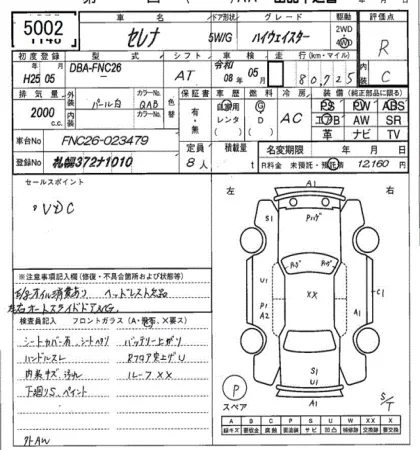 5002
車名
セレナ
ドア形状
5W/G
グレード
ハイウェイスター
駆動
2WD
4WD
評価点
R
C
初度登録
H25 05
型式
DBA-FNC26
シフト
AT
車検
令和
08年 05月
走行 (km・マイル)
80,725
排気量
2000
c.c.
外装
パール白
カラーNo.
QAB
内装
カラーNo.
色替
保証書
有・無
車歴
自家用
レンタ
燃料
G
D
冷房
AC
装備 (純正部品に限る)
PS PW ABS
エアB AW SR
革 ナビ TV
車台No
FNC26-023479
登録No
札幌372ナ1010
定員
8人
積載量
t
名変期限
年 月 日
R料金 未預託・預託済 12,160 円
セールスポイント
VDC
左
右
A1
S1
※注意事項記入欄 (修復・不具合箇所および状態等)
E/gオイル消費あり ヘッドレスト欠品
左右オートスライドドアNG
検査員記入
フロントガラス (A・飛石、X要ス)
シートカバー有 シートヘタリ
バッテリー上がり
ハンドルスレ
内装キズ、汚れ
ルーフXX
下廻りS、ペイント
外AW
Pハゲ
Pハゲ
Pハゲ
U1
P1
A2
XX
C1
S1
U1
A1
P
スペア
S/T
A B C P S U W XX X